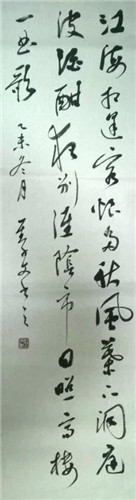 江海相逢客恨多秋風葉下洞庭
波酒酣夜别淮陰市月照高樓
一曲歌 乙未冬月